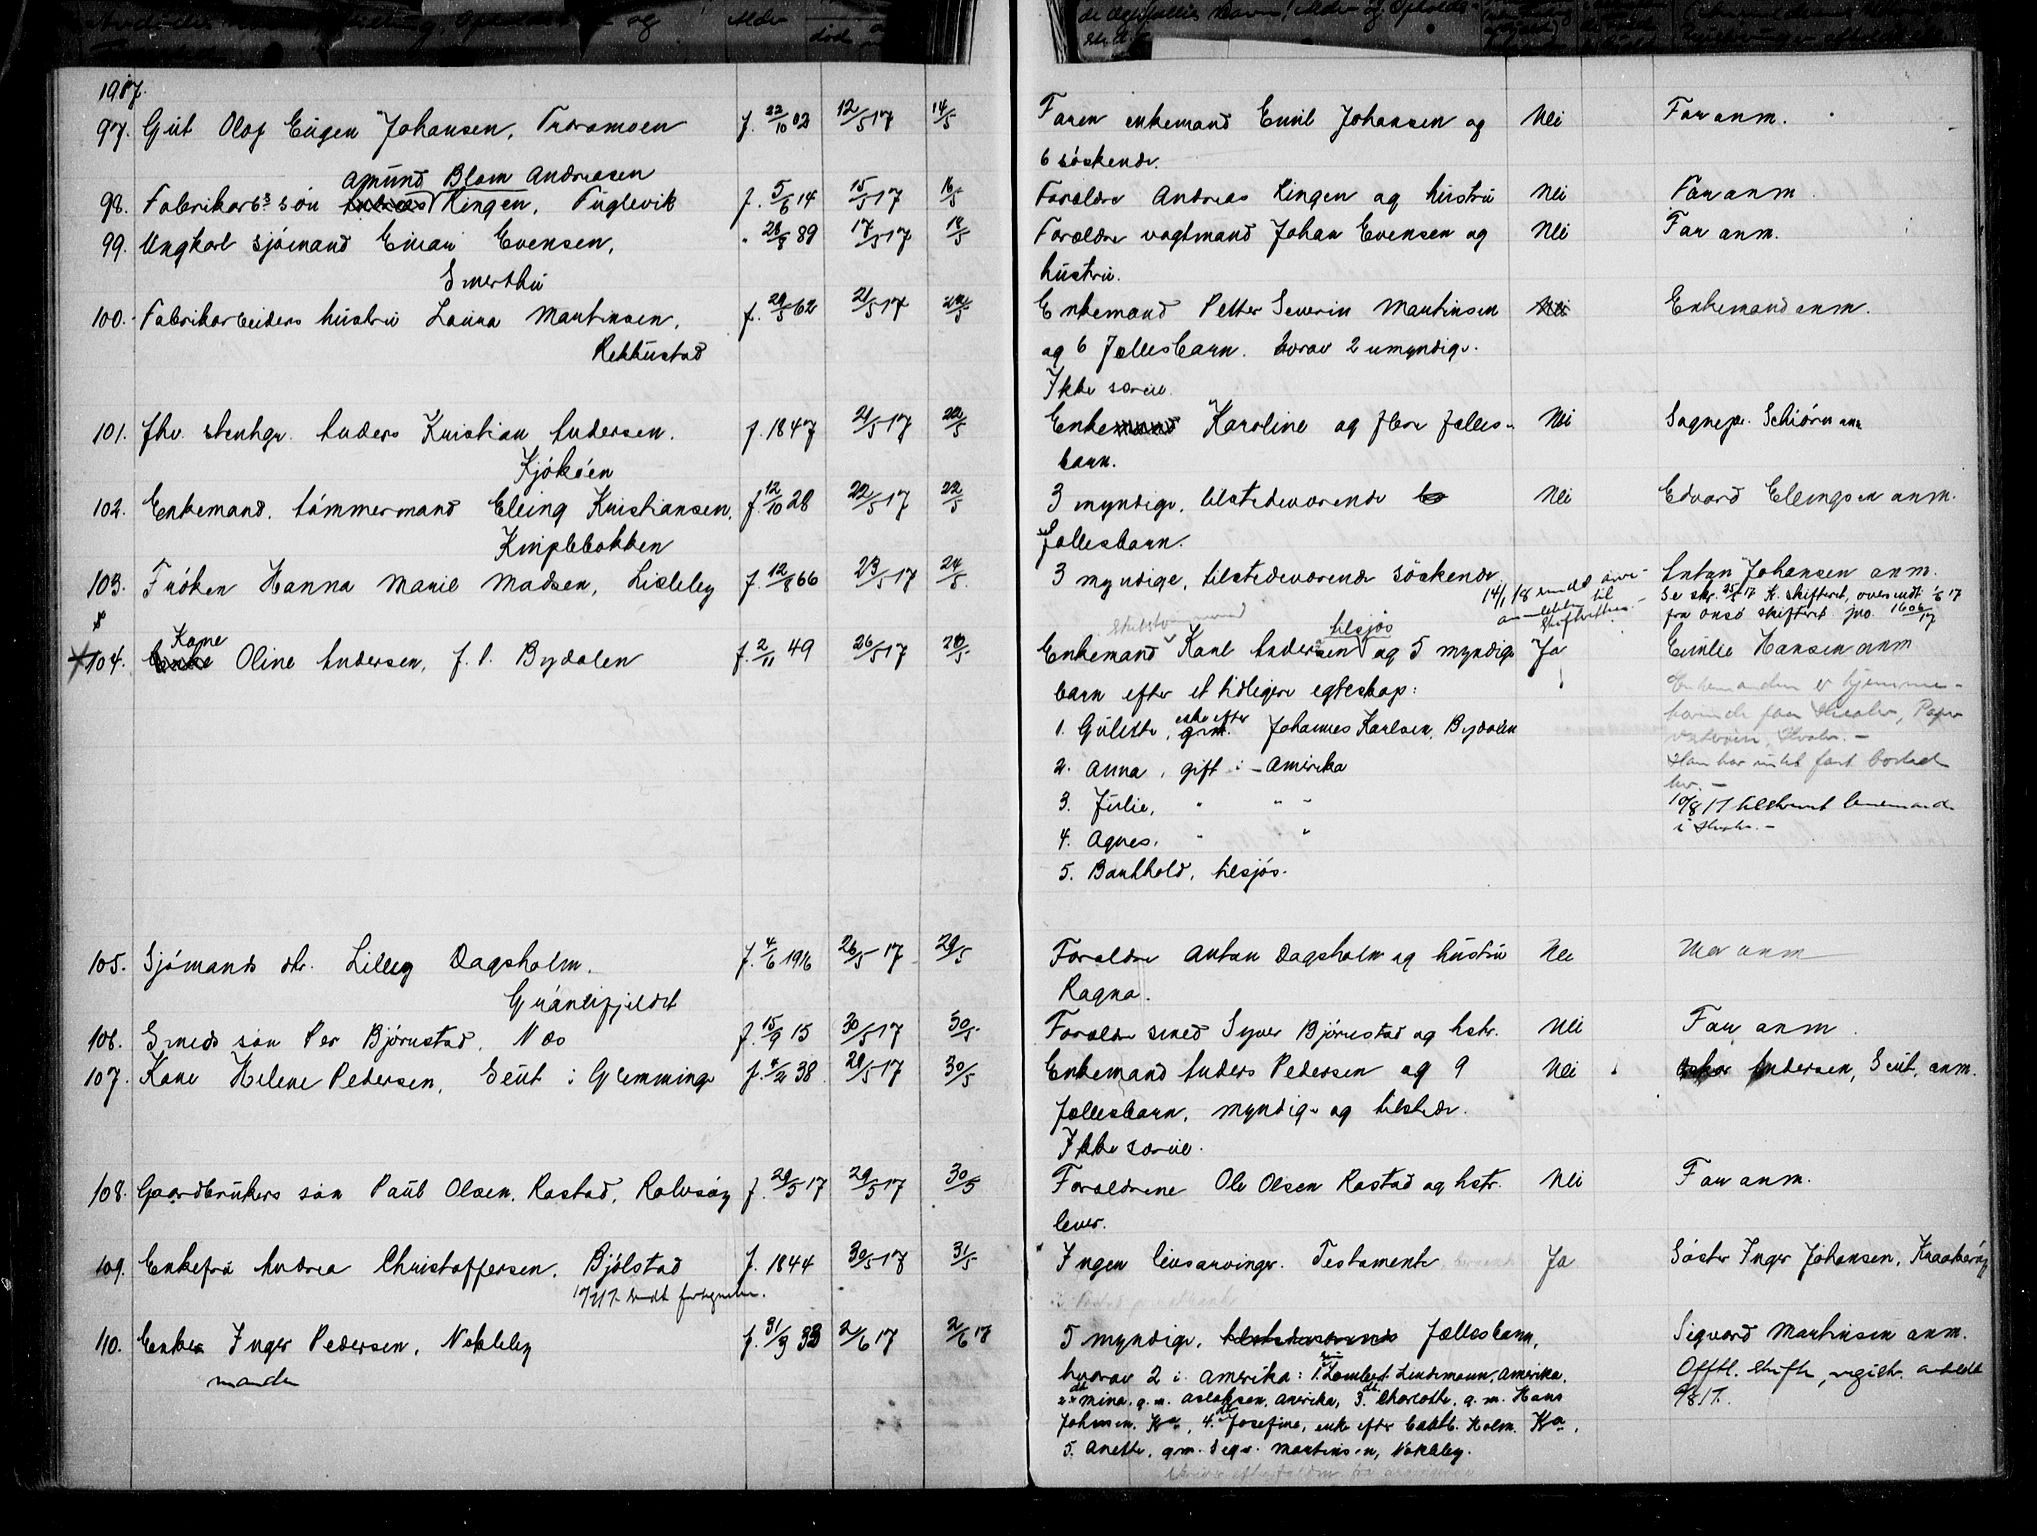 1917.
97. Gut Olaf Eugen Johansen, Traramoen f. 22/10 02 12/5 17 14/5 Faren enkemand Emil Johansen og Nei Far anm.
6 söskende.
Amund Blom Andreasen
98. Fabrikarb.s sön Ringen, Fuglevik f. 5/6 14 15/5 17 16/5 Forældre Andreas Ringen og hustru Nei Far anm.
99. Ungkarl sjömand Einar Evensen, " 28/8 89 17/5 17 18/5 Forældre vagtmand Johan Evensen og Nei Far anm.
Smertu hustru.
100. Fabrikarbeiders hustru Laura Martinsen, f. 29/5 62 21/5 17 22/5 Enkemand Petter Severin Martinsen Nei Enkemand anm.
Rekkustad og 6 fællesbarn. hvorav 2 umyndige.
Ikke særeie.
101. Fhv. stenhgr. Anders Kristian Andersen. f. 1847 21/5 17 22/5 Enkemand Karoline og flere fælles- Nei Sognepr. Schiörn anm
Kjököen barn.
102. Enkemand, tömmermand Elling Kristiansen, f. 12/10 28 22/5 17 22/5 3 myndige, tilstedeværende Nei Edvard Ellingsen anm.
Kniplebakken fællesbarn.
103. Fröken Hanna Marie Madsen, Lisleby f. 12/8 66 23/5 17 24/5 3 myndige, tilstedeværende söskende Anton Johansen anm.
14/1 18 sendt arve- Se skr. 25/5 17 K. skifteret, oversendt 1/6 17
anmeldelse til skifteretten. fra Onsö skifteret jno. 1606/17
104. Kone Oline Andersen, f. P. Bydalen f. 2/11 49 26/5 17 28/5 Enkemand Karl Andersen tilsjös og 5 myndige Ja Emilie Hansen anm
barn efter et tidligere egteskap: Enkemanden er hjemme-
1. Gulette, enke efter Johannes Karlsen, Bydalen hörende paa Hvaler, Papper
2. Anna, gift i Amerika Han har intet fast bosted
3. Julie, " " - her. -
10/8 17 tilskrevet lensmanden
4. Agnes, " " i Hvaler. -
5. Barthold, tilsjös.
105. Sjömands dtr. Lilly Dagsholm. f. 4/6 1916 26/5 17 29/5 Forældre Anton Dagsholm og hustru Nei Mor anm
Graneifjeldet Ragna.
106. Smeds sön Per Björnstad, Næs f. 15/9 15 30/5 17 30/5 Forældre smed Syver Björnstad og hstr. Nei Far anm.
107. Kone Helene Pedersen, Seut i Glemminge f. 4/2 38 29/5 17 30/5 Enkemand Anders Pedersen og 9 Nei Andersen, Seut, anm.
fællesbarn, myndige og tilstede.
Ikke særeie.
108. Gaardbrukers sön Paul Olsen, Rostad, Rolvsöy f. 29/5 17 29/5 17 30/5 Forældrene Ole Olsen Rostad og hstr. Nei Far anm.
lever.
109. Enkefru Andrea Christoffersen, Bjölstad f. 1844 30/5 17 31/5 Ingen livsarvinger. Testamente Ja Söster Inger Johansen, Kraakeröy
110. Enke Inger Pedersen, Nokleby f. 31/3 33 2/6 17 2/6 17 5 myndige, tilstedeværende fællesbarn, Sigvard Martinsen anm.
hvorav 2 i Amerika: 1. Lambert Lindemann, Amerika, Offtl. skifte,
2. Mina, g. m. Aslaksen, Amerika, 3. Charlotte, g. m. Hans
Johnsen, Kra, 4. Josefine, enke efter Holm, Kra,
5. Anette, g.m. Sigv. Martinsen, Nokleby.